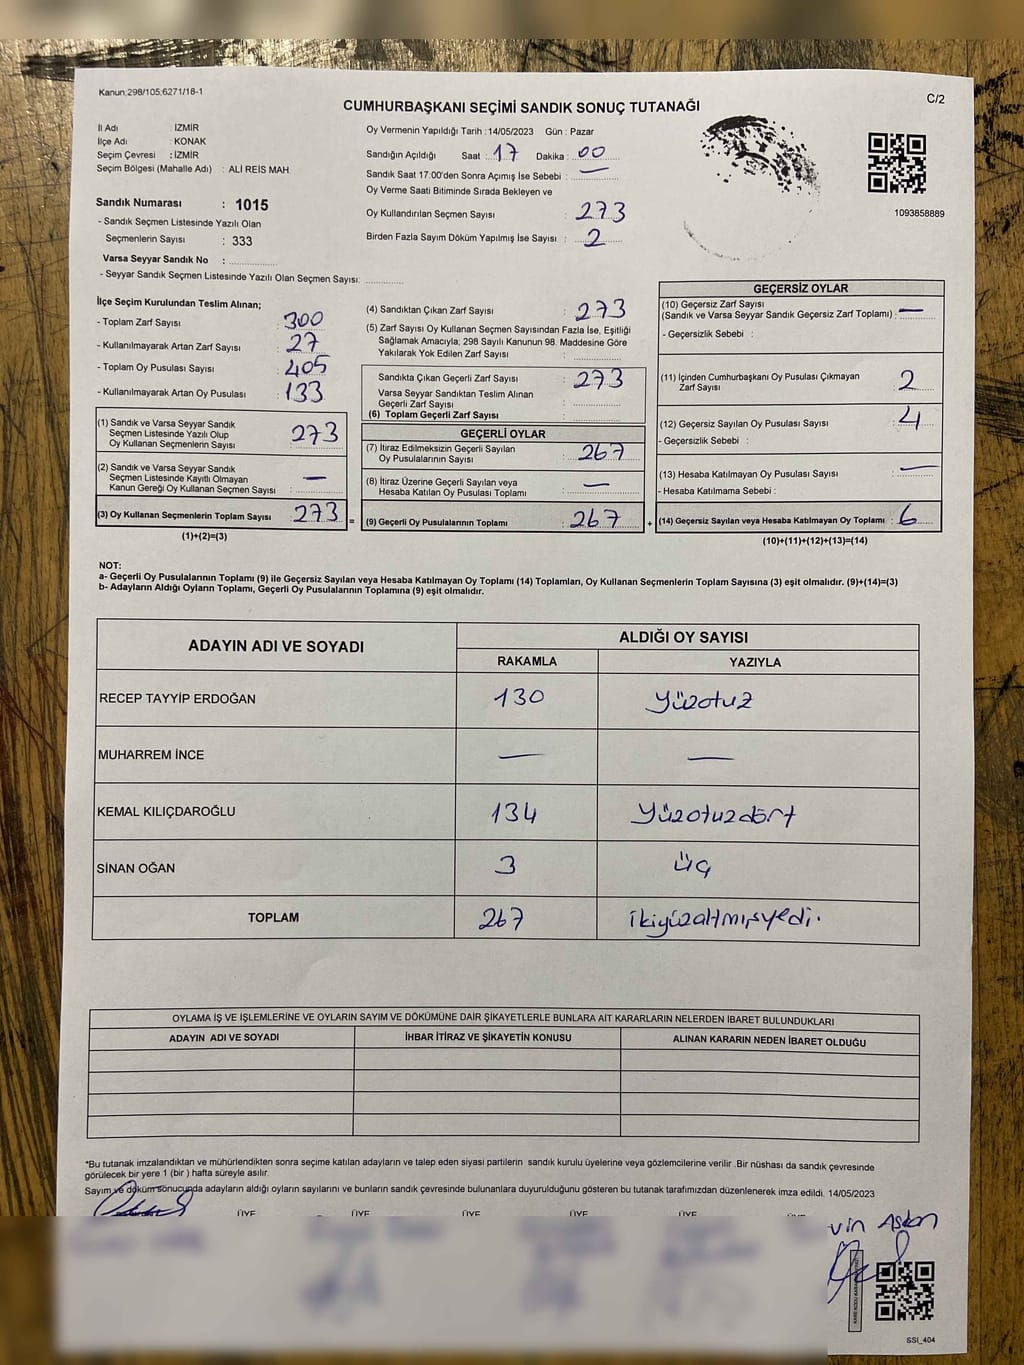 Kanun:298/105;6271/18-1
C/2
CUMHURBAŞKANI SEÇİMİ SANDIK SONUÇ TUTANAĞI
İl Adı : İZMİR
İlçe Adı : KONAK
Seçim Çevresi : İZMİR
Seçim Bölgesi (Mahalle Adı) : ALİ REİS MAH.
Sandık Numarası : 1015
- Sandık Seçmen Listesinde Yazılı Olan
Seçmenlerin Sayısı : 333
Varsa Seyyar Sandık No :
- Seyyar Sandık Seçmen Listesinde Yazılı Olan Seçmen Sayısı:
Oy Vermenin Yapıldığı Tarih :14/05/2023 Gün : Pazar
Sandığın Açıldığı Saat : 17 Dakika : 00
Sandık Saat 17:00'den Sonra Açımış İse Sebebi : —
Oy Verme Saati Bitiminde Sırada Bekleyen ve
Oy Kullandırılan Seçmen Sayısı : 273
Birden Fazla Sayım Döküm Yapılmış İse Sayısı : 2
1093858889
İlçe Seçim Kurulundan Teslim Alınan;
- Toplam Zarf Sayısı : 300
- Kullanılmayarak Artan Zarf Sayısı : 27
- Toplam Oy Pusulası Sayısı : 405
- Kullanılmayarak Artan Oy Pusulası : 133
(1) Sandık ve Varsa Seyyar Sandık
Seçmen Listesinde Yazılı Olup
Oy Kullanan Seçmenlerin Sayısı : 273
(2) Sandık ve Varsa Seyyar Sandık
Seçmen Listesinde Kayıtlı Olmayan
Kanun Gereği Oy Kullanan Seçmen Sayısı : —
(3) Oy Kullanan Seçmenlerin Toplam Sayısı : 273 =
(1)+(2)=(3)
(4) Sandıktan Çıkan Zarf Sayısı : 273
(5) Zarf Sayısı Oy Kullanan Seçmen Sayısından Fazla İse, Eşitliği
Sağlamak Amacıyla; 298 Sayılı Kanunun 98. Maddesine Göre
Yakılarak Yok Edilen Zarf Sayısı :
Sandıkta Çıkan Geçerli Zarf Sayısı : 273
Varsa Seyyar Sandıktan Teslim Alınan
Geçerli Zarf Sayısı :
(6) Toplam Geçerli Zarf Sayısı :
GEÇERLİ OYLAR
(7) İtiraz Edilmeksizin Geçerli Sayılan
Oy Pusulalarının Sayısı : 267
(8) İtiraz Üzerine Geçerli Sayılan veya
Hesaba Katılan Oy Pusulası Toplamı : —
(9) Geçerli Oy Pusulalarının Toplamı : 267 +
GEÇERSİZ OYLAR
(10) Geçersiz Zarf Sayısı
(Sandık ve Varsa Seyyar Sandık Geçersiz Zarf Toplamı) : —
- Geçersizlik Sebebi :
(11) İçinden Cumhurbaşkanı Oy Pusulası Çıkmayan
Zarf Sayısı : 2
(12) Geçersiz Sayılan Oy Pusulası Sayısı : 4
- Geçersizlik Sebebi :
(13) Hesaba Katılmayan Oy Pusulası Sayısı : —
- Hesaba Katılmama Sebebi :
(14) Geçersiz Sayılan veya Hesaba Katılmayan Oy Toplamı : 6
(10)+(11)+(12)+(13)=(14)
NOT:
a- Geçerli Oy Pusulalarının Toplamı (9) ile Geçersiz Sayılan veya Hesaba Katılmayan Oy Toplamı (14) Toplamları, Oy Kullanan Seçmenlerin Toplam Sayısına (3) eşit olmalıdır. (9)+(14)=(3)
b- Adayların Aldığı Oyların Toplamı, Geçerli Oy Pusulalarının Toplamına (9) eşit olmalıdır.
ADAYIN ADI VE SOYADI
ALDIĞI OY SAYISI
RAKAMLA YAZIYLA
RECEP TAYYİP ERDOĞAN 130 Yüzotuz
MUHARREM İNCE — —
KEMAL KILIÇDAROĞLU 134 Yüzotuzdört
SİNAN OĞAN 3 üç
TOPLAM 267 ikiyüzaltmışyedi.
OYLAMA İŞ VE İŞLEMLERİNE VE OYLARIN SAYIM VE DÖKÜMÜNE DAİR ŞİKAYETLERLE BUNLARA AİT KARARLARIN NELERDEN İBARET BULUNDUKLARI
ADAYIN ADI VE SOYADI İHBAR İTİRAZ VE ŞİKAYETİN KONUSU ALINAN KARARIN NEDEN İBARET OLDUĞU
*Bu tutanak imzalandıktan ve mühürlendikten sonra seçime katılan adayların ve talep eden siyasi partilerin sandık kurulu üyelerine veya gözlemcilerine verilir .Bir nüshası da sandık çevresinde
görülecek bir yere 1 (bir ) hafta süreyle asılır.
Sayım ve döküm sonucunda adayların aldığı oyların sayılarını ve bunların sandık çevresinde bulunanlara duyurulduğunu gösteren bu tutanak tarafımızdan düzenlenerek imza edildi. 14/05/2023
ÜYE ÜYE ÜYE ÜYE ÜYE
vin Aslan
SSI_404